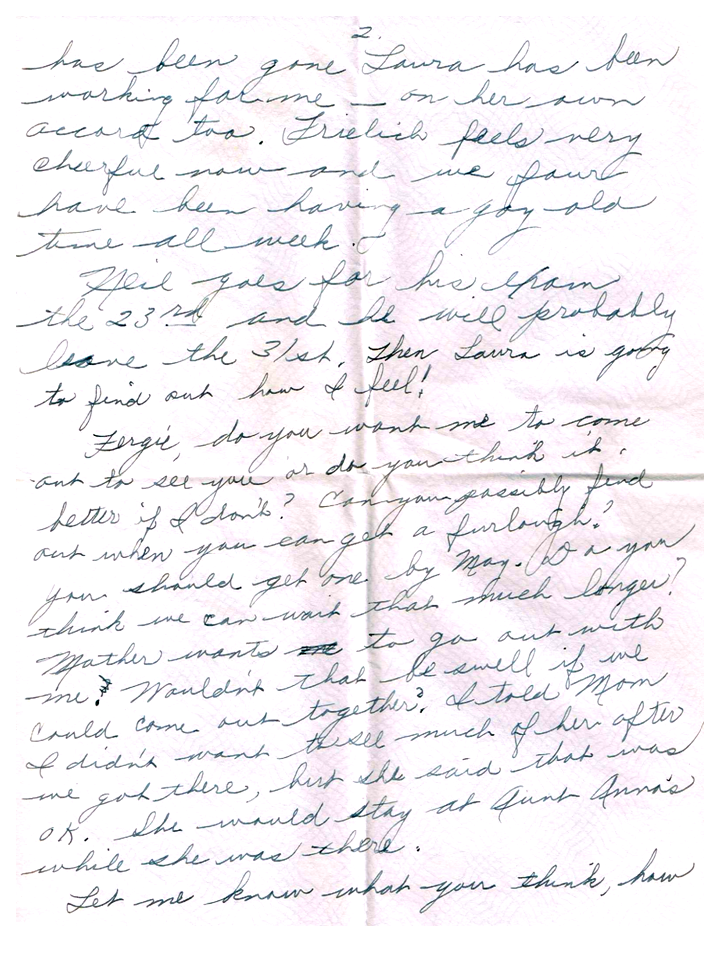 2.
has been gone Laura has been
working for me — on her own
accord too. Frielich feels very
cheerful now and we four
have been having a gay old
time all week.
Neil goes for his exam
the 23rd and he will probably
leave the 31st. Then Laura is going
to find out how I feel!
Fergie, do you want me to come
out to see you or do you think it
better if I don't? Can you possibly find
out when you can get a furlough?
you should get one by May. Do you
think we can wait that much longer?
Mother wants to go out with
me. Wouldn't that be swell if we
could come out together? I told Mom
I didn't want to see much of her after
we got there, but she said that was
OK. She would stay at Aunt Anna's
while she was there.
Let me know what you think, how